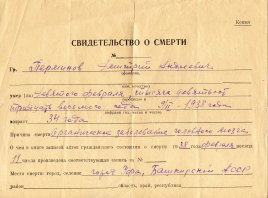 Копия
СВИДЕТЕЛЬСТВО О СМЕРТИ
Гр. Перминов Дмитрий
умер Девятого февраля тысяча девятьсот
тридцать восьмого года 9/II 1938 года
возраст 34 года
Причина смерти Органическое заболевание головного мозга
О чем в книге записей актов гражданского состояния о смерти 19 38 февраля месяца
11 числа произведена соответствующая запись за №
Место смерти: город, селение город Уфа, Башкирской АССР
район
область, край, республика